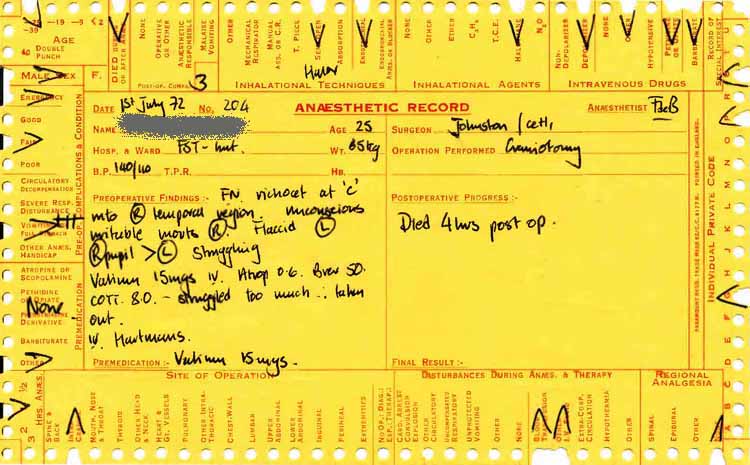 -39 -19 -9 <2
AGE
40 DOUBLE PUNCH
MALE SEX F.
DIED
OR AFTER
NONE
OPERATIVE OR OTHER
ANAESTHETIC RESPONSIBLE
MALAISE VOMITING
OTHER
POST-OP. COMPS. 3
MECHANICAL RESPIRATOR
MANUAL ASS. OR C.R.
T. PIECE
ABSORPTION
Haler
INHALATIONAL TECHNIQUES
NONE
OTHER
ETHER
C₃H₆
T.C.E.
N₂O
INHALATIONAL AGENTS
NON-DEPOLARIZER
DEPOLARIZER
OTHER
HYPOTENSIVE
INTRAVENOUS DRUGS
RECORD OF SPECIAL INTEREST
DATE 1st July 72 NO. 204 ANÆSTHETIC RECORD ANÆSTHETIST
NAME AGE 25 SURGEON Johnston /
HOSP. & WARD FST - WT. 85kg OPERATION PERFORMED Craniotomy
B.P. 140/110 T.P.R. HB.
PREOPERATIVE FINDINGS :- FN richocet at 'C'
into (R) temporal region unconscious
irritable moves (R) Flaccid (L)
(R) pupil > (L) Struggling
Valium 15mgs iv. Atrop 0.6. Brev 50.
COTT. 8.0. - struggled too much ∴ taken
out.
iv. Hartmans.
PREMEDICATION :- Valium 15mgs.
POSTOPERATIVE PROGRESS :-
Died 4hrs post op.
FINAL RESULT :-
EMERGENCY
GOOD
FAIR
POOR
CIRCULATORY DECOMPENSATION
SEVERE RESP. DISTURBANCE
VOMITING
FULL STOMACH
OTHER ANÆS. HANDICAP
PRE-OP. COMPLICATIONS & CONDITION
ATROPINE OR SCOPOLAMINE
PETHIDINE OR OPIATE
None
DERIVATIVE
BARBITURATE
OTHER
PREMEDICATION
INDIVIDUAL PRIVATE CODE
PRINTED IN ENGLAND.
½
2
3
HRS. ANÆS.
SITE OF OPERATION
SPINE & BACK
MOUTH, NOSE & THROAT
THYROID
OTHER HEAD & NECK
HEART & GT. VESSELS
PULMONARY
OTHER INTRA-THORACIC
CHEST-WALL
LUMBAR
UPPER ABDOMINAL
LOWER ABDOMINAL
INGUINAL
PERINEAL
EXTREMITIES
NO OP. (DIAG.) (OR THERAP.)
DISTURBANCES DURING ANÆS. & THERAPY
CARD. ARREST CONVULSION EXPLOSION
OTHER CIRCULATORY
UNCOMPENSATED RESPIRATORY
UNPROTECTED VOMITING
OTHER
NONE
EXTRA-CORP. CIRCULATION
HYPOTHERMIA
OTHER
REGIONAL ANALGESIA
SPINAL
EPIDURAL
OTHER